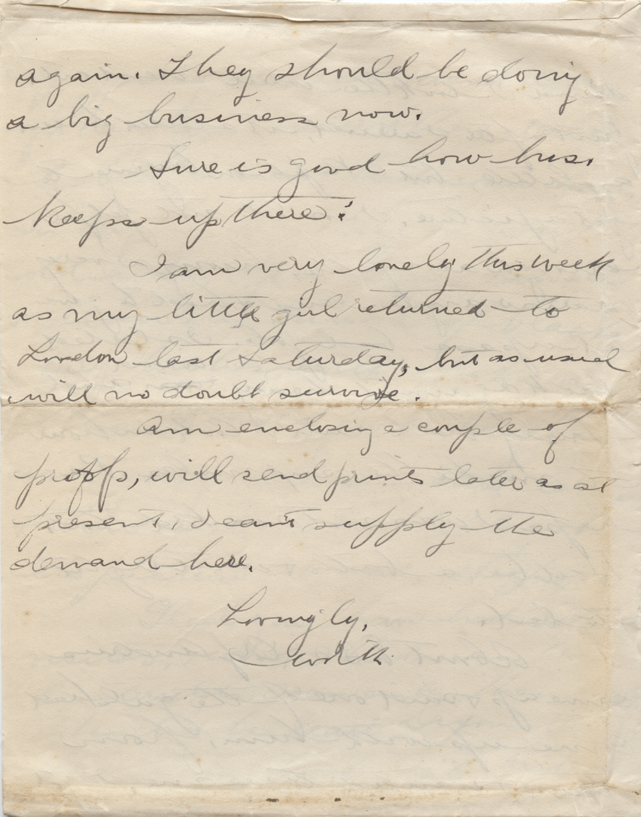 again. They should be doing
a big business now.
Sure is good how bus.
keeps up there!
I am very lonely this week
as my little girl returned to
London last Saturday, but as usual
will no doubt survive.
Am enclosing a couple of
proofs, will send prints later as at
present, I can't supply the
demand here.
Lovingly,